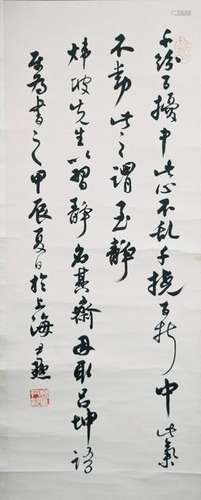 千纷百扰中此心不乱千挠百折中此气
不动此之谓至静
炜坡先生以習静名其斋因取吕坤语
属为書之甲辰夏日於上海尹默